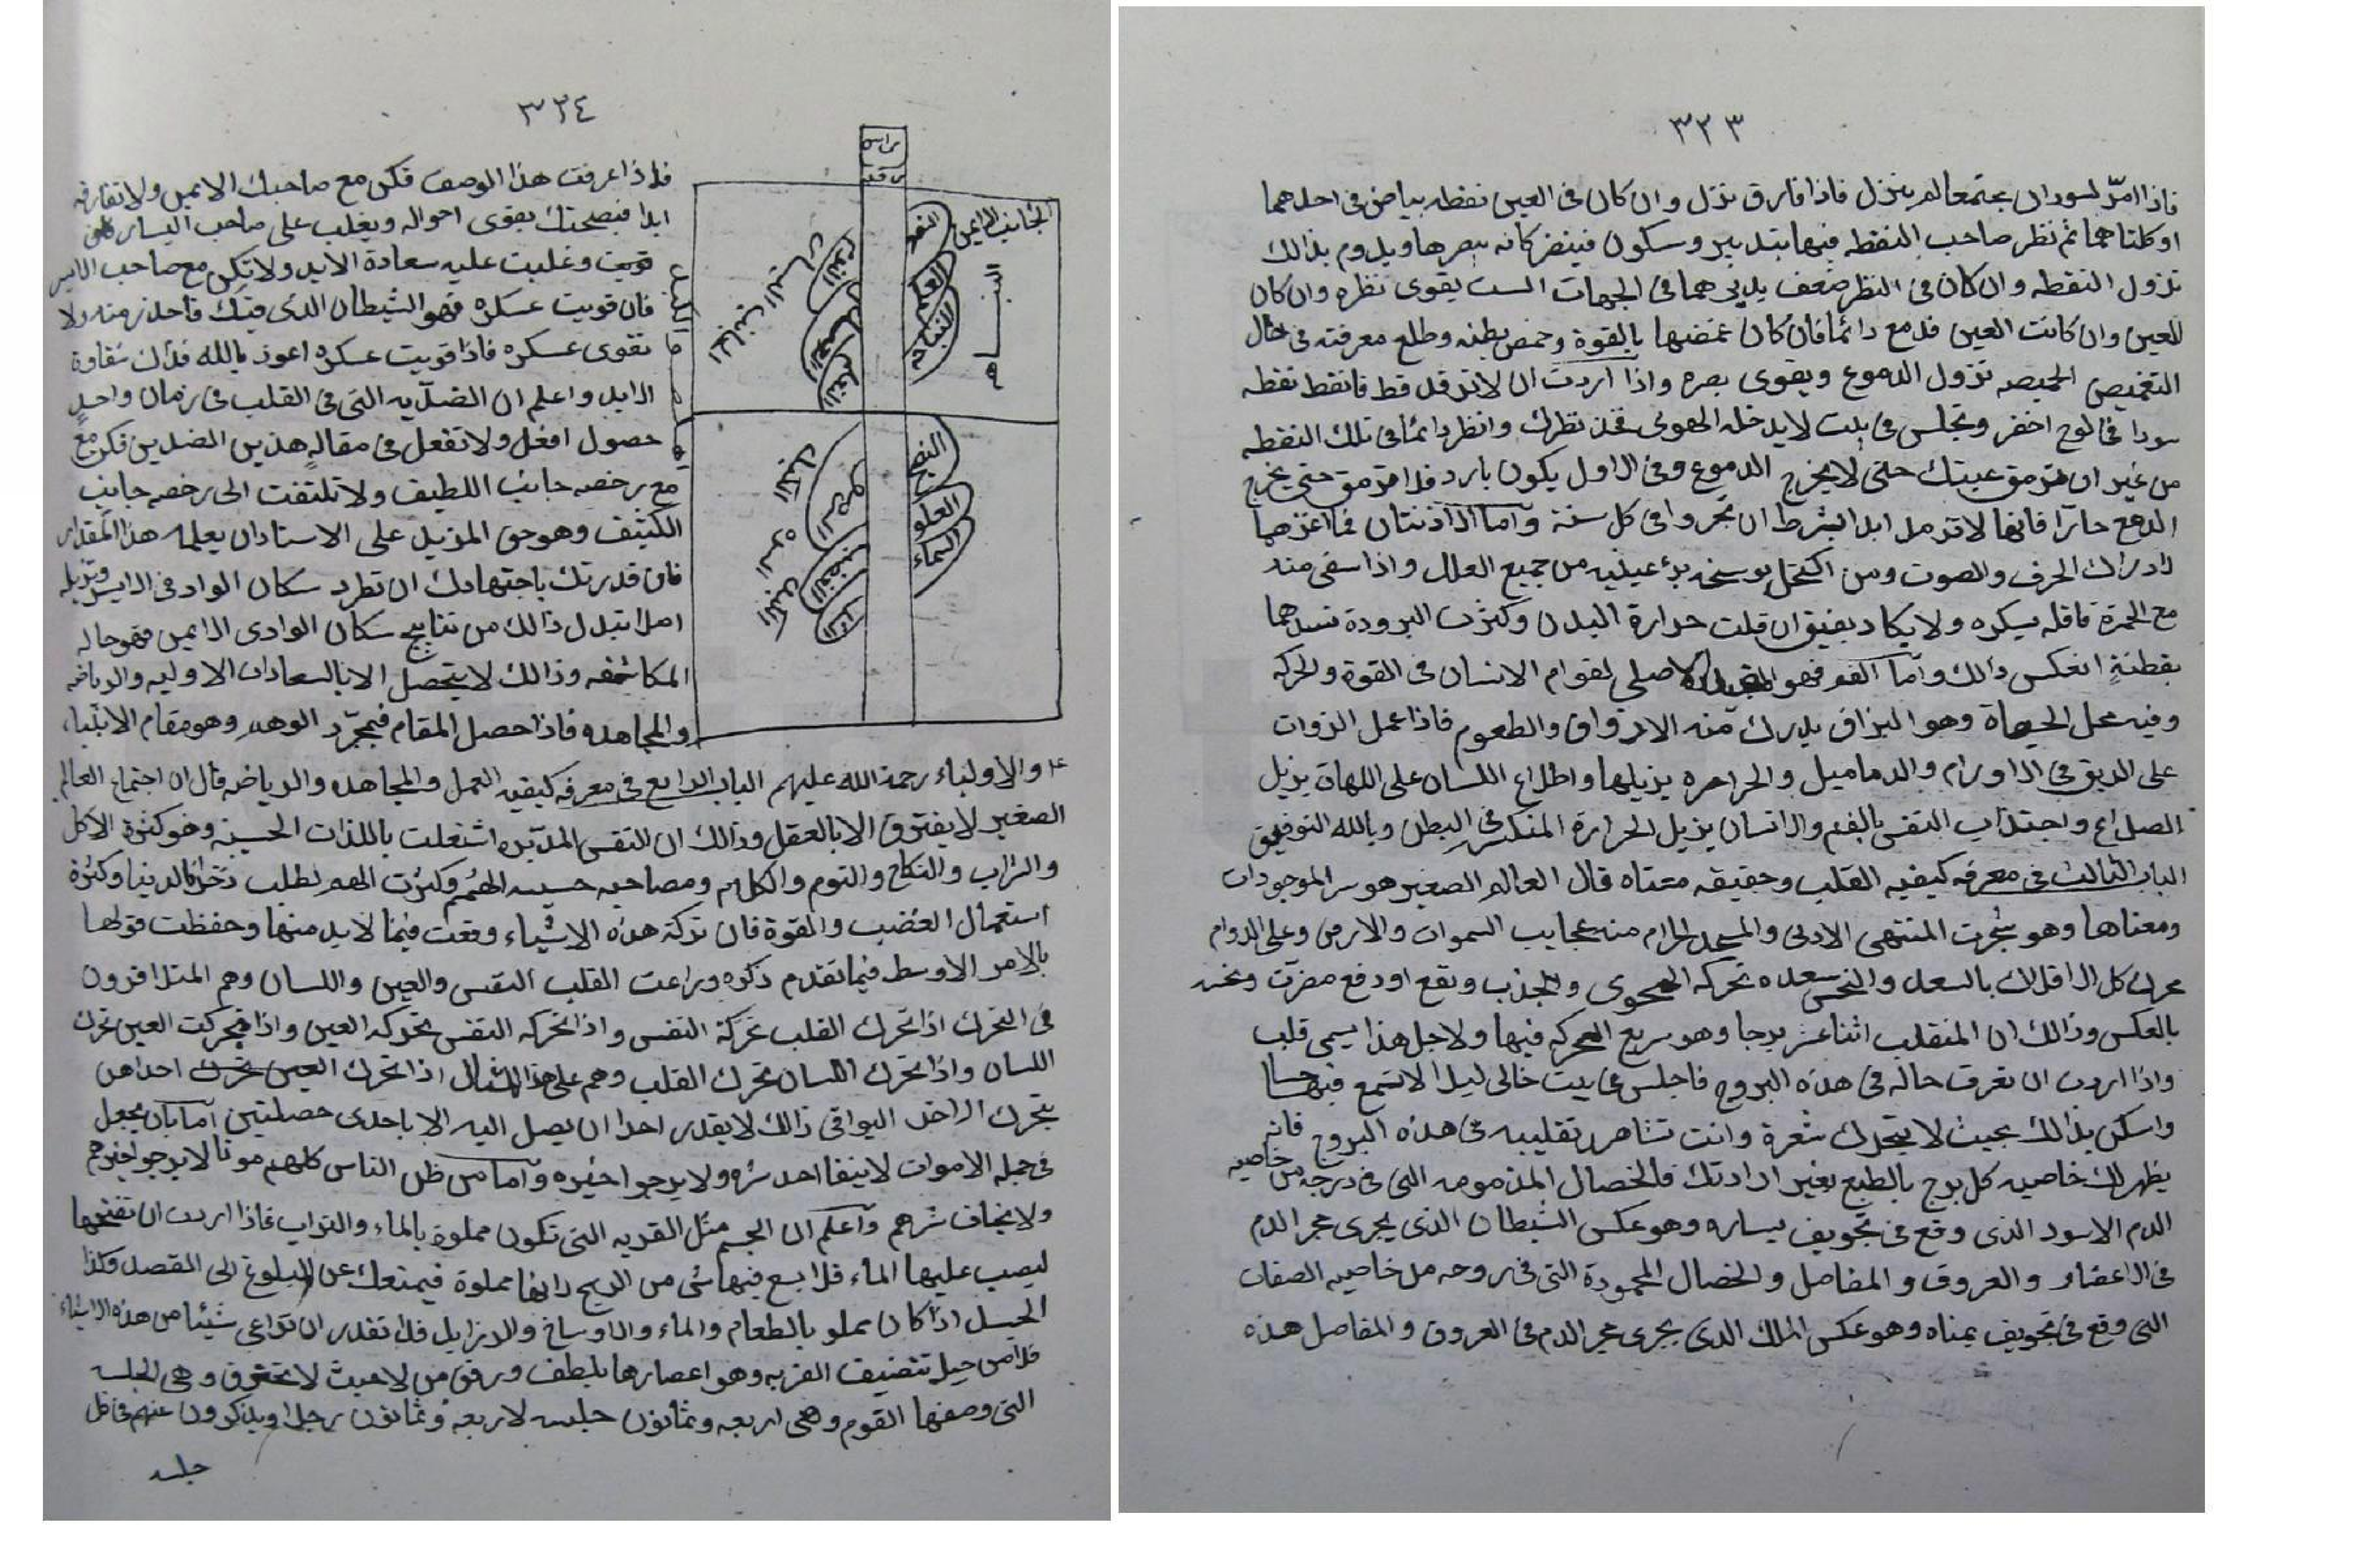 ٣٢٣
فاذا امدّ لسودان مجتمعا لم ينزل فاذا فارق نزل وان كان فى العين نقطه بياض فى احدهما
او كلتاهما ثم نظر صاحب النقطه فيها بتدبير وسكون فينفز كانه يبصرها ويدوم بذالك
نزول النقطه وان كان فى النظر ضعف يديرهما فى الجهات الست يقوى نظره وان كان
للعين وان كانت العين فدمع دائما فان كان غمضها بالقوة وحمص بطنه وطلع معرفته فى حال
التغميص الحميصه نزول الدموع ويقوى بصره واذا اردت ان لا ترقد قط فانقط نقطه
سودا فى لوح اخضر وتجلس فى بيت لا يدخله الهوى فخذ نظرك وانظر دائما فى تلك النقطه
من غير ان ترمق عينك حتى لا يخرج الدموع وفى الاول يكون بارد فلا ترمق حتى يخرج
الدمع حارّا فانها لا ترمل ابدا بشرط ان تجروا فى كل سنة وآما الاذنتان فما اعزهما
لادراك الحرف والصوت ومن اكتحل بوسخه برئ عينيه من جميع العلل واذا سقى منه
مع الخمرة فاقله يسكره ولا يكاد يفيق وان قلت حرارة البدن وكثرت البرودة نسدهما
بقطنةٍ انعكس ذالك وآما الفم فهو الاصلى لقوام الانسان فى القوة والحركه
وفيه محل الحيوة وهو البزاق يدرك منه الاذواق والطعوم فاذا عمل الذوات
على الريق فى الاورام والدماميل والجراحره يزيلها واطلاع اللسان على اللهات يزيل
الصداع واجتذاب النفس بالفم والانسان يزيل الحرارة المنكر فى البطن وبالله التوفيق
الباب الثالث فى معرفه كيفيه القلب وحقيقه معناه قال العالم الصغير هو سر الموجودات
ومعناها وهو شجرت المنتهى الادنى والمسجد الحرام منه عجايب السموات والارض وعلى الدوام
محرك كل الافلاك بالسعد والنحس سعده تحركه الهوى والجذب ونفع او دفع مضرت ونحسه
بالعكس وذالك ان المنقلب اثنا عشر برجا وهو سريع الحركه فيها ولاجل هذا يسمى قلب
واذا اردت ان تعرف حاله فى هذه البروج فاجلس فى بيت خالى ليلا لا تسمع فيها حسا
واسكن بذالك بحيث لا يتحرك شعرة وانت تشاهد تقليبه فى هذه البروج فانه
يظهر لك خاصيه كل برج بالطبع بغير ارادتك فالخصال المذمومه التى فى درجه من خاصيه
الدم الاسود الذى وقع فى تجويف يساره وهو عكس الشيطان الذى يجرى مجر الدم
فى الاعضاء والعروق والمفاصل والخصال المحمودة التى فى روحه من خاصيه الصفات
التى وقع فى تجويف يمناه وهو عكس الملك الذى يجرى مجر الدم فى العروق والمفاصل هذه
٣٢٤
راسه
رقبه
الجانب الايمن
العلم
التعلم
الجانب اليسار
النوم
العلو
السماء
الغضب
فاذا عرفت هذا الوصف فكن مع صاحبك الايمن ولا تفارقه
ابدا فبصحتك يقوى احواله ويغلب على صاحب اليسار
قويت وغلبت عليه سعادة الابد ولا تكن مع صاحب الايسر
فان قويت عسكره فهو الشيطان الذى فيك فاحذر منه ولا
تقوى عسكره فاذا قويت عسكره اعوذ بالله فلان شقاوة
الابد واعلم ان الضدّيه التى فى القلب فى زمان واحدٍ
حصول افعل ولا تفعل فى مقالهِ هذين الضدين فكن مع
مع رخصه جانب اللطيف ولا تلتفت الى رخصه جانب
الكثيف وهو حق المزيد على الاستاذ ان يعلمه هذا المقدار
فان قدرتك باجتهادك ان تطرد سكان الواد فى الايسر وتزيله
اصلا تبدل ذالك من نتايج سكان الوادى الايمن فهو حاله
المكاشفه وذالك لا يتحصل الا بالسعادات الاوليه والرياضه
والمجاهده فاذا حصل المقام فبمجرّد الوهم وهو مقام الانبياء
والاولياء رحمة الله عليهم الباب الرابع فى معرفه كيفيه العمل والمجاهده والرياضه قال ان اجتماع العالم
الصغير لا يفترق الا بالعقل وذالك ان النفس المدبّره اشتغلت باللذات الحسيه وهو كثرة الاكل
والشراب والنكاح والنوم والكلام ومصاحبه خسيسه الهمم وكثرت الهم لطلب ذخائر الدنيا وكثرة
استعمال الغضب والقوة فان تركة هذه الاشياء وقعت فيما لا بد منها وحفظت قوتها
بالامر الاوسط فيما تقدم ذكره وراعت القلب النفس والعين واللسان وهم المتلافزون
فى التحرك اذا تحرك القلب تحركة النفس واذا تحركه النفس تحركه العين واذا تحركت العين تحرك
اللسان واذا تحرك اللسان تحرك القلب وهم على هذا المثال اذا تحرك احداهن
يتحرك الاخر البواقى ذالك لا يقدر احدا ان يصل اليه الا باحدى خصلتين آما بان يجعل
فى جمله الاموات لا يبقا احد شره ولا يرجوا خيره وآما من ظن الناس كلهم موتا لا يرجوا خيرهم
ولا يخاف شرهم وآعلم ان الجسم مثل القربه التى تكون مملوة بالماء والتراب فاذا اردت ان تفتحها
ليصب عليها الماء فلا يسع فيها شى من الريح دايما مملوة فيمنعك عن البلوغ الى المقصد وكذا
الجسد اذا كان مملو بالطعام والماء والاوساخ والابزايل فلا تقدر ان تراعى شيئا من هذه الاشياء
فلا من حيل تنضيف القربه وهو اعصارها بلطف ورفق من لا حيث لا تحقرق وهى الجلسه
التى وصفها القوم وهى اربعه وثمانون جلسه لاربعه وثمانون رجلا ويذكرون عنهم فى كل
جلسه